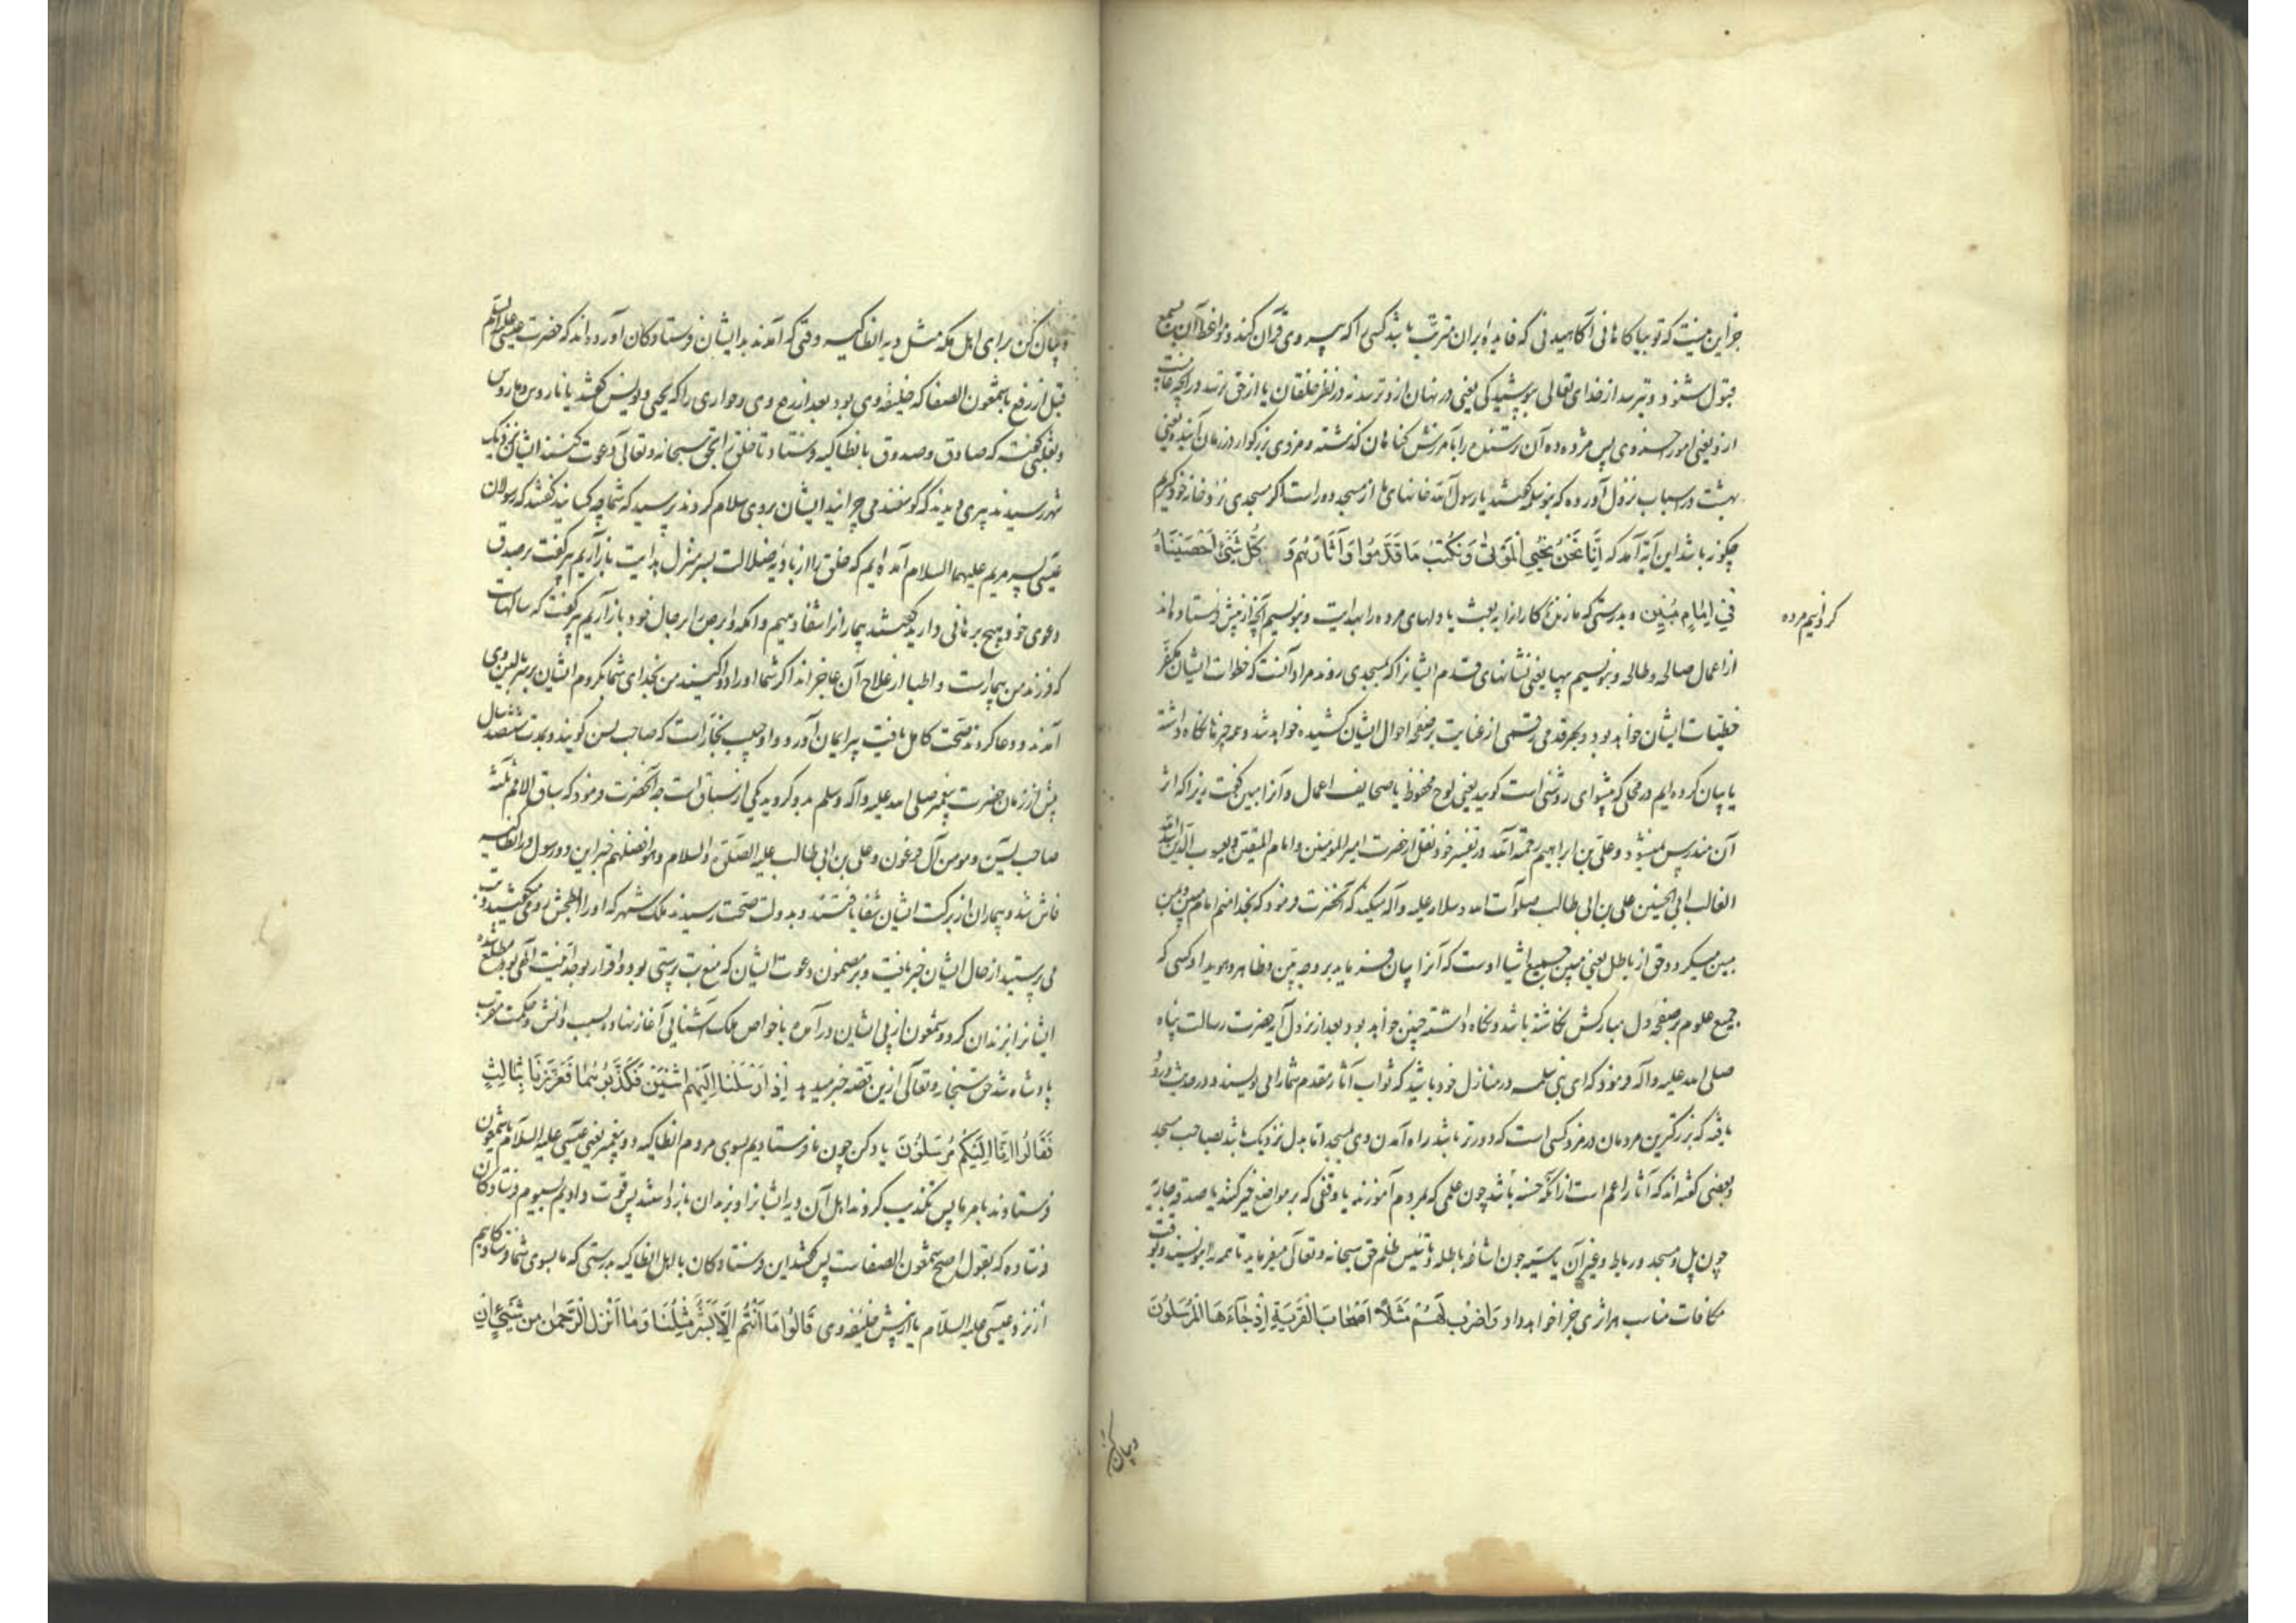 جز این نیست که تو بیاگاهانی آگاهیدنی که فایده بران مترتب باشد کسی را که پیروی قرآن کند و مواعظ آن بسمع
قبول شنود و بترسد از خدای تعالی بپوشیدگی یعنی در نهان ازو ترسد نه در نظر خلقان یا از حق ترسد در آنچه غایبست
ازو یعنی امور اخروی پس مژده ده آن ترسنده را بآمرزش گناهان گذشته و مزدی بزرگوار در زمان آینده یعنی
بهشت در اسباب نزول آورده که بنو سلمه گفتند یا رسول الله خانهای ما از مسجد دور است اگر مسجدی نزد خانه خود گیریم
چگونه باشد این آیه آمد که اِنَّا نَحْنُ نُحْیِی الْمَوْتٰی وَنَکْتُبُ مَا قَدَّمُوا وَآثَارَهُمْ وَ کُلَّ شَیْءٍ اَحْصَیْنَاهُ
فِی اِمَامٍ مُبِینٍ و بدرستی که ما زنده
از اعمال صالحه و طالحه و بنویسیم پیها یعنی نشانهای قدم ایشانرا که بمسجد می روند مراد آنست که خطوات ایشان مکفر
خطیئات ایشان خواهد بود و بهر قدمی رقمی از عنایت بر صفحه احوال ایشان کشیده خواهد شد و همه چیزها نگاه داشته
یا بیان کرده ایم در محلی که پیشوای روشنی است گویند یعنی لوح محفوظ یا صحایف اعمال و آنرا مبین گفت زیرا که اثر
آن مندرس نمیشود و علی بن ابراهیم رحمه الله در تفسیر خود نقل از حضرت امیرالمؤمنین و امام المتقین و یعسوب الدین اسد الله
الغالب ابی الحسنین علی بن ابی طالب صلوات الله و سلامه علیه و آله میکند که آنحضرت فرمود که بخدا منم امام مبین و من
مبین میگردد حق از باطل یعنی مبین جمیع اشیا اوست که آنرا بیان فرماید بر وجه مبین و ظاهر و هویدا و کسی که
جمیع علوم بر صفحه دل مبارکش نگاشته باشد و نگاه داشته چنین خواهد بود و بعد از نزول آیه حضرت رسالت پناه
صلی الله علیه و آله فرمود که ای بنی سلمه در منازل خود باشید که ثواب آثار مقدم شما را می نویسند و در حدیث ورود
یافته که بزرگترین مردمان در مزد کسی است که دورتر باشد راه آمدن وی بمسجد اما بدل نزدیک باشد بصاحب مسجد
و بعضی گفته اند که آثار اعم است از آنکه حسنه باشد چون علمی که بمردم آموزند یا وقفی که بر مواضع خیر کنند یا صدقه جاریه
چون پل و مسجد و رباط و غیر آن یا سیئه چون اشاعه باطله و تأسیس ظلم حق سبحانه و تعالی میفرماید تا همه را بنویسند و بوقت
مکافات مناسب هر اثری جزا خواهد داد وَاضْرِبْ لَهُمْ مَثَلًا اَصْحَابَ الْقَرْیَةِ اِذْ جَاءَهَا الْمُرْسَلُونَ
گردانیم مرده
و بیان کن
و بیان کن برای اهل مکه مثل دیه انطاکیه وقتی که آمدند بدیشان فرستادگان آورده اند که حضرت عیسی علیه السلم
قبل از رفع با شمعون الصفا که خلیفه وی بود بعد از رفع وی دو حواری را که یحیی و یونس گفتند یا ناروس و ماروس
و ثعلبی گفته که صادق و صدوق بانطاکیه فرستاد تا خلق را بحق سبحانه و تعالی دعوت کنند ایشان نزدیک
شهر رسیدند پیری دیدند که گوسفند می چرانید ایشان بروی سلام کردند پرسید که شما چه کسانید گفتند که رسولان
عیسی پسر مریم علیهما السلام آمده ایم که خلق را از بادیه ضلالت بسر منزل هدایت باز آریم پیر گفت بر صدق
دعوی خود هیچ برهانی دارید گفتند بیمارانرا شفا دهیم و اکمه و ابرص را بر حال خود باز آریم پیر گفت که سالهاست
که فرزند من بیمار است و اطبا از علاج آن عاجزاند اگر شما او را دوا کنید من بخدای شما بگروم ایشان بر سر بالین وی
آمدند و دعا کردند صحت کامل یافت پیر ایمان آورد و او حبیب نجار است که صاحب یس گویند و بمدت ششصد سال
پیش از زمان حضرت پیغمبر صلی الله علیه و آله وسلم بدو گروید یکی از سباق است چه آنحضرت فرمود که سباق الامم ثلثه
صاحب یس و مومن آل فرعون و علی بن ابی طالب علیه الصلوة و السلام و هو افضلهم خبر این دو رسول در انطاکیه
فاش شد و بیماران از برکت ایشان شفا یافتند و بدولت صحت رسیدند ملک شهر که او را انطیخش رومی میگفتند و بت
می پرستید از حال ایشان خبر یافت و بر مضمون دعوت ایشان که منع بت پرستی بود و اقرار بوحدانیت الهی بود مطلع شده
ایشانرا بزندان کرد و شمعون از پی ایشان در آمده با خواص ملک آشنایی آغاز نهاد و بسبب دانش و حکمت مقرب
پادشاه شد حق سبحانه و تعالی ازین قصه خبر میدهد اِذْ اَرْسَلْنَا اِلَیْهِمُ اثْنَیْنِ فَکَذَّبُوهُمَا فَعَزَّزْنَا بِثَالِثٍ
فَقَالُوا اِنَّا اِلَیْکُمْ مُرْسَلُونَ یاد کن چون ما فرستادیم بسوی مردم انطاکیه دو پیغمبر یعنی عیسی علیه السلام با شمعون
فرستادند بامر ما پس تکذیب کردند اهل آن دیه ایشانرا و بزندان باز داشتند پس قوت دادیم بسیوم فرستادگان
فرستاده که بقول اصح شمعون الصفاست پس گفتند این فرستادگان با اهل انطاکیه بدرستی که ما بسوی شما فرستادگانیم
از نزد عیسی علیه السلام یا از پیش خلیفه وی قَالُوا مَا اَنْتُمْ اِلَّا بَشَرٌ مِثْلُنَا وَمَا اَنْزَلَ الرَّحْمٰنُ مِنْ شَیْءٍ اِنْ